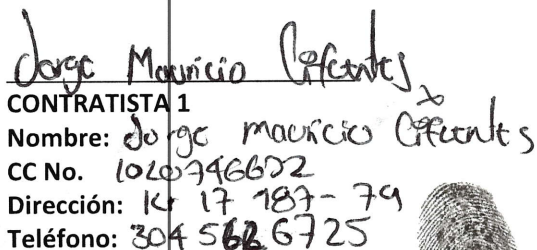 Jorge Mauricio Cifuentes
CONTRATISTA 1
Nombre: Jorge mauricio Cifuentes
CC No. 1020746622
Dirección: Kr 17 187-79
Teléfono: 304 562 6725